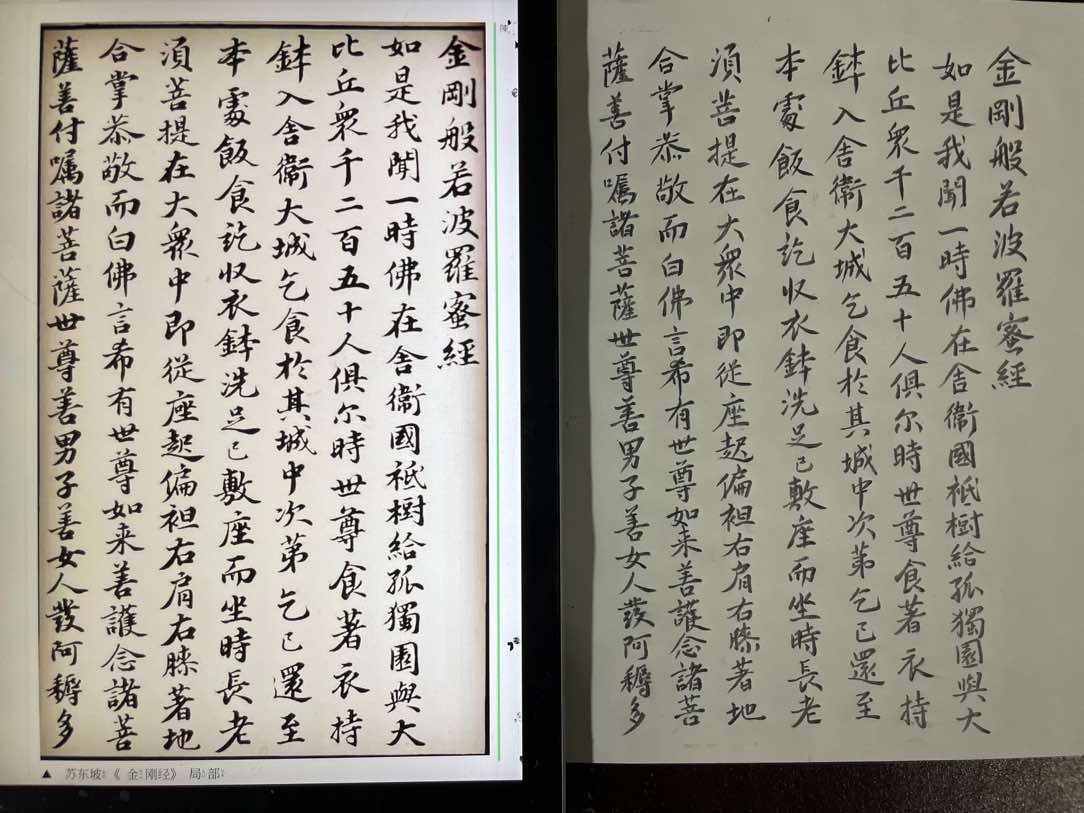 金剛般若波羅蜜經
如是我聞一時佛在舍衞國祇樹給孤獨園與大
比丘衆千二百五十人俱尔時世尊食著衣持
鉢入舍衞大城乞食於其城中次第乞已還至
本處飯食訖収衣鉢洗足已敷座而坐時長老
湏菩提在大衆中即從座起偏袒右肩右膝著地
合掌恭敬而白佛言希有世尊如来善護念諸菩
薩善付囑諸菩薩世尊善男子善女人發阿耨多
▲ 苏东坡：《金刚经》局部：
金剛般若波羅蜜經
如是我聞一時佛在舍衞國祇樹給孤獨園與大
比丘衆千二百五十人俱尔時世尊食著衣持
鉢入舍衞大城乞食於其城中次第乞已還至
本處飯食訖収衣鉢洗足已敷座而坐時長老
湏菩提在大衆中即從座起偏袒右肩右膝著地
合掌恭敬而白佛言希有世尊如来善護念諸菩
薩善付囑諸菩薩世尊善男子善女人發阿耨多